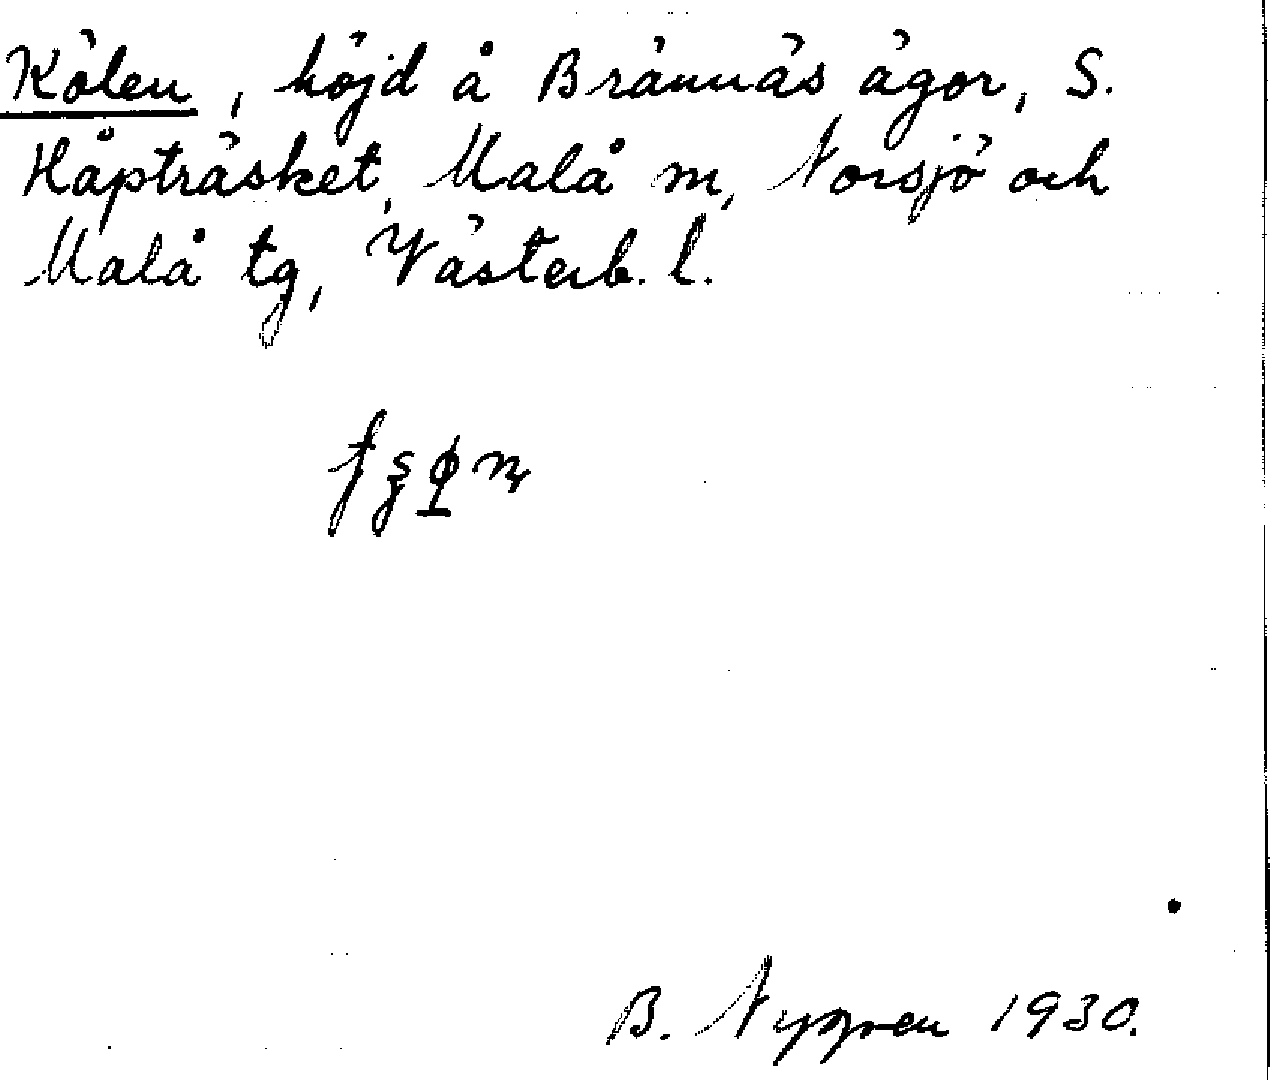 Kölen, höjd å Brännäs ägor, S.
Håpträsket, Malå m, Norsjö och
Malå tg, Västerb. l.
B. Nygren 1930.